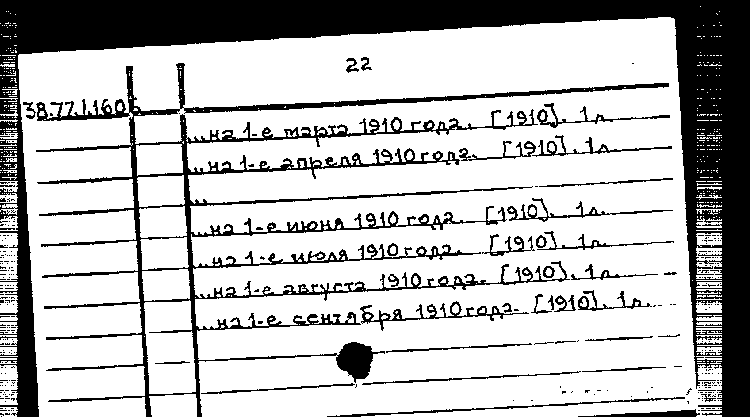 22
38.77.1.160
...на 1-е марта 1910 года. [1910]. 1 л.
...на 1-е апреля 1910 года. [1910]. 1 л.
...
...на 1-е июня 1910 года. [1910]. 1 л.
...на 1-е июля 1910 года. [1910]. 1 л.
...на 1-е августа 1910 года. [1910]. 1 л.
...на 1-е сентября 1910 года. [1910]. 1 л.